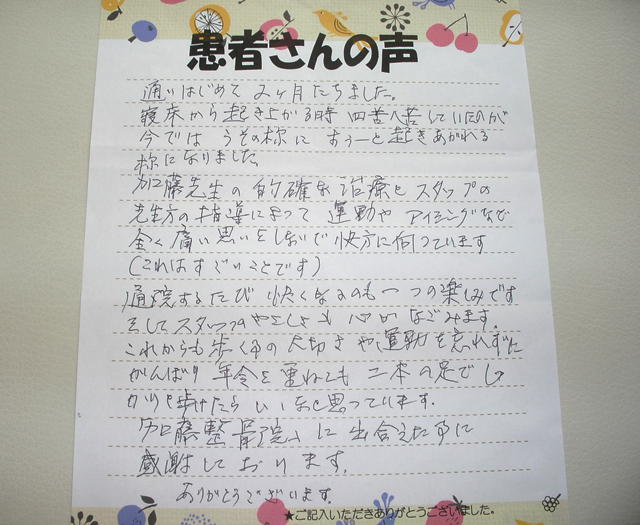 患者さんの声
通いはじめて 2ヶ月たちました。
寝床から起き上がる時 四苦八苦していたのが
今では うその様に すぅーと起きあがれる
様になりました。
加藤先生の的確な治療と スタップの
先生方の指導によって 運動や アイシングなど
全く痛い思いをしないで 快方に向っています
(これはすごいことです)
通院するたび 快くなるのも 一つの楽しみです
そして スタッフのやさしさも 心がなごみます。
これからも歩く事の大切さや、運動を忘れずに
がんばり 年令を重ねても 二本の足でしっ
かりと歩けたら いいなと思っています。
「加藤整骨院」に 出会えた事に
感謝して おります。
ありがとうございます。
★ご記入いただきありがとうございました。